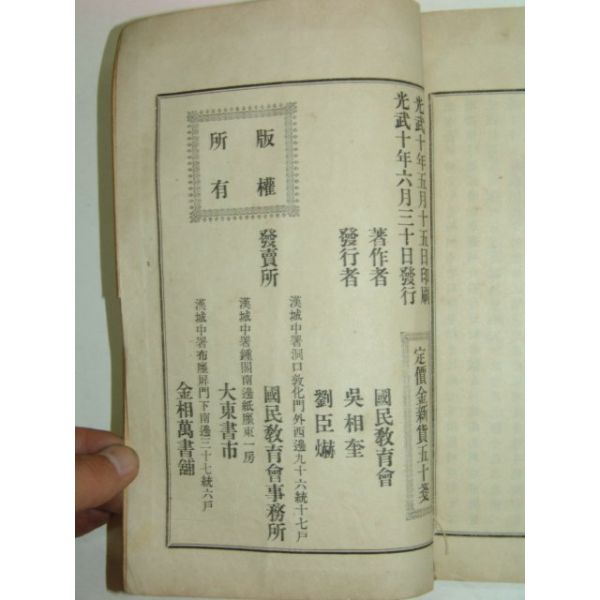 光武十年五月十五日印刷
光武十年六月三十日發行
定價金新貨五十箋
著作者 國民敎育會
發行者 吳相奎
劉臣爀
漢城中署洞口敦化門外西邊九十六統十七戶
發賣所 國民敎育會事務所
漢城中署鍾閣南邊紙廛東一房
大東書市
漢城中署布廛屛門下南邊三十七統六戶
金相萬書舖
版權
所有